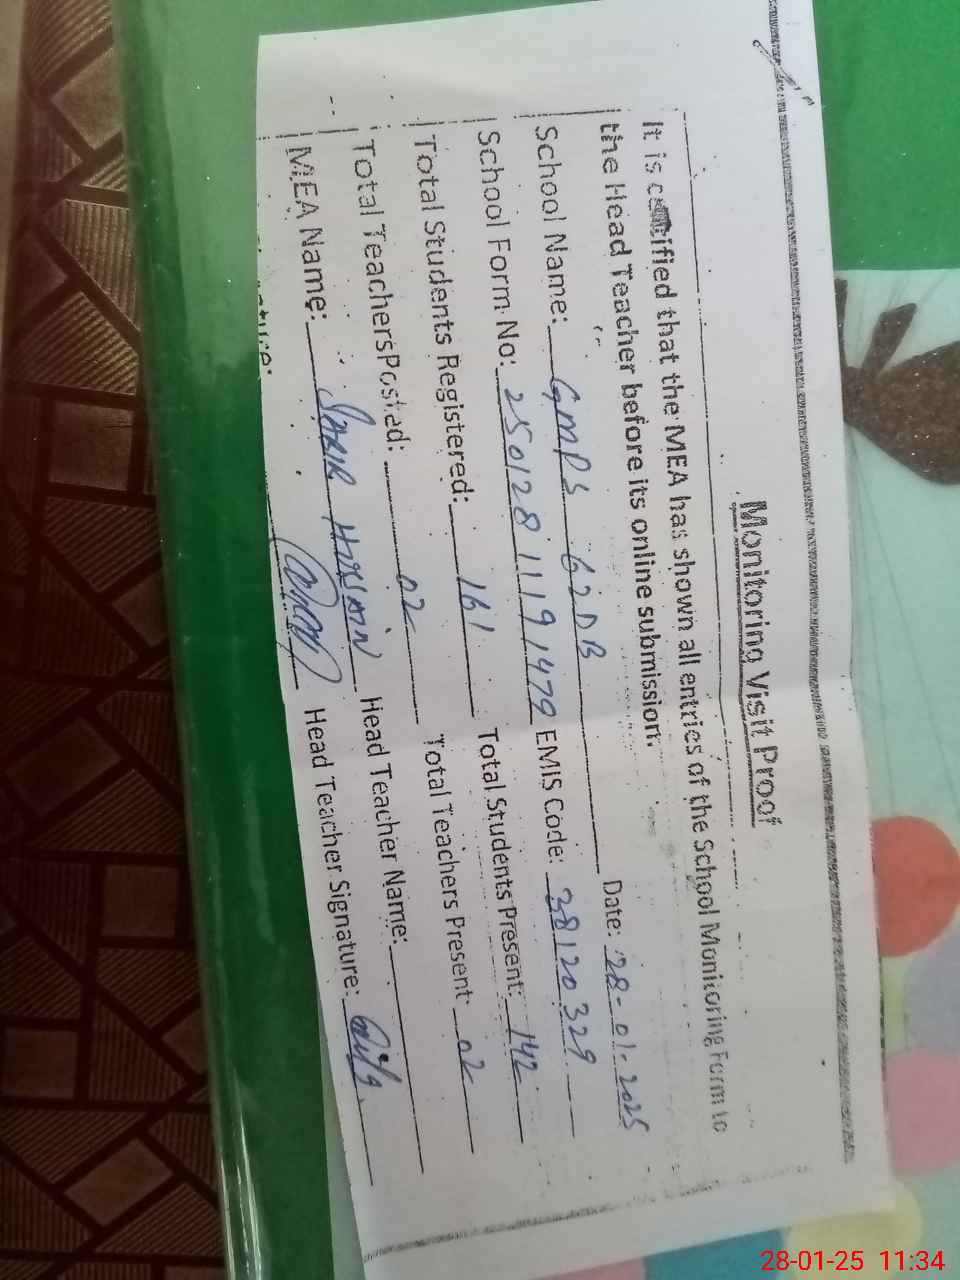 Monitoring Visit Proof
It is certified that the MEA has shown all entries of the School Monitoring Form to
the Head Teacher before its online submission.
School Name: GMPS 62DB Date: 28-01-2025
School Form No: 25012811191479 EMIS Code: 38120329
Total Students Registered: 161 Total Students Present: 142
Total Teachers Posted: 02 Total Teachers Present: 02
MEA Name: Head Teacher Name:
Head Teacher Signature:
28-01-25 11:34